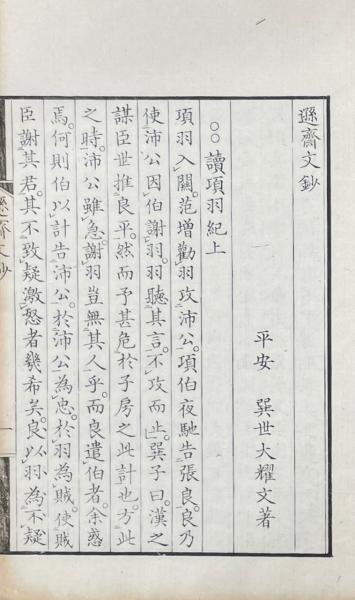 遜齋文鈔
平安　巽世大耀文著
○○讀項羽紀上
項羽入關。范增勸羽攻沛公。項伯夜馳告張良。良乃
使沛公因伯謝羽。羽聽其言。不攻而止。巽子曰。漢之
謀臣世推良平。然而予甚危於子房之此計也。方此
之時。沛公雖急。謝羽豈無其人乎。而良遣伯者。余惑
焉。何則伯以計告沛公。於沛公為忠。於羽為賊。使賊
臣謝其君。其不致疑激怒者幾希矣。良以羽為不疑